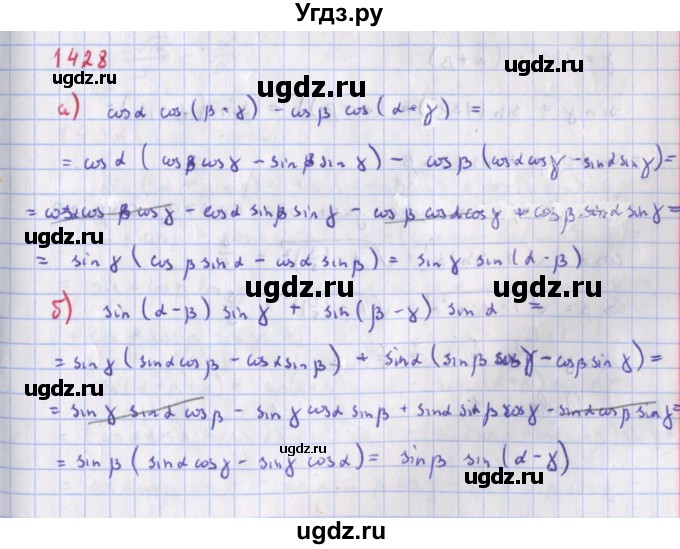 Угдз.ру
1428
ugdz.ru ugdz.ru ugdz.ru
а) cosα cos(β+γ) - cosβ cos(α+γ) =
= cosα (cosβ cosγ - sinβ sinγ) - cosβ (cosα cosγ - sinα sinγ) =
= cosα cosβ cosγ - cosα sinβ sinγ - cosβ cosα cosγ + cosβ sinα sinγ =
ugdz.ru ugdz.ru
= sinγ (cosβ sinα - cosα sinβ) = sinγ sin(α-β)
ugdz.ru
б) sin(α-β) sinγ + sin(β-γ) sinα =
= sinγ (sinα cosβ - cosα sinβ) + sinα (sinβ cosγ - cosβ sinγ) =
ugdz.ru ugdz.ru
= sinγ sinα cosβ - sinγ cosα sinβ + sinα sinβ cosγ - sinα cosβ sinγ =
ugdz.ru
= sinβ (sinα cosγ - sinγ cosα) = sinβ sin(α-γ)
ugdz.ru ugdz.ru
ugdz.ru